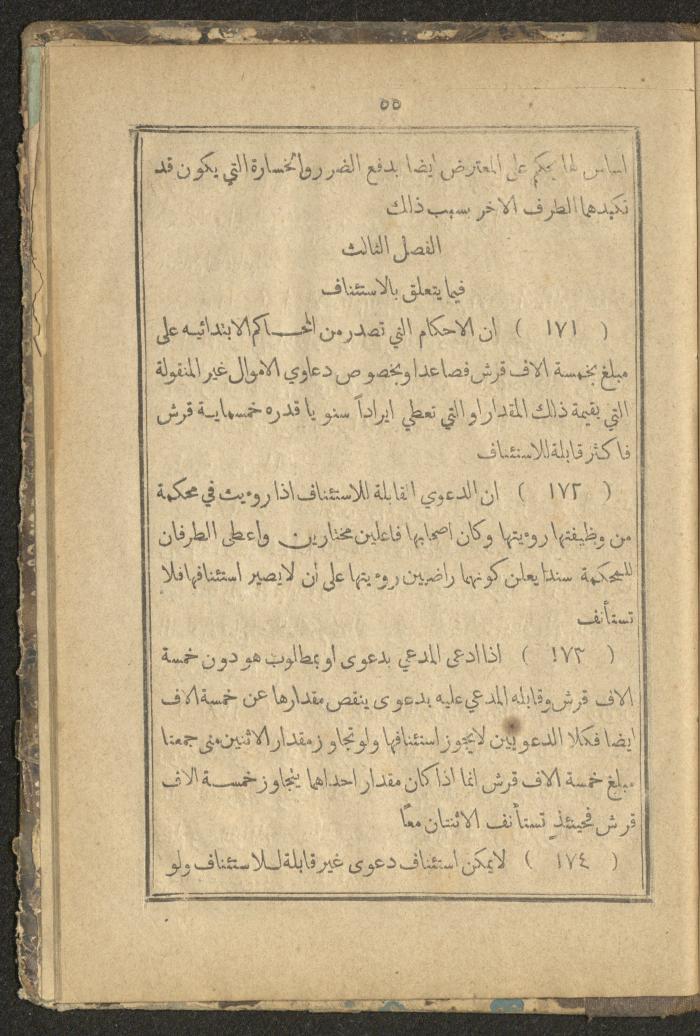 ٥٥
اساس لها يحكم على المعترض ايضا بدفع الضرر والخسارة التي يكون قد
تكبدهما الطرف الاخر بسبب ذلك
الفصل الثالث
فيما يتعلق بالاستئناف
( ١٧١ ) ان الاحكام التي تصدر من المحاكم الابتدائيه على
مبلغ بخمسة الاف قرش فصاعدا وبخصوص دعاوي الاموال غير المنقولة
التي بقيمة ذلك المقدار او التي تعطي ايراداً سنويا قدره خمسماية قرش
فاكثر قابلة للاستئناف
( ١٧٢ ) ان الدعوي القابلة للاستئناف اذا روءيت في محكمة
من وظيفتها روءيتها وكان اصحابها فاعلين مختارين واعطى الطرفان
للمحكمة سندا يعلن كونهما راضيين روءيتها على أن لايصير استئنافها فلا
تستأنف
( ١٧٣ ) اذا ادعى المدعي بدعوى او بمطلوب هو دون خمسة
الاف قرش وقابله المدعي عليه بدعوى ينقص مقدارها عن خمسة الاف
ايضا فكلا الدعويين لايجوز استئنافها ولو تجاوز مقدار الاثنين متى جمعتا
مبلغ خمسة الاف قرش انما اذا كان مقدار احداهما يتجاوز خمسة الاف
قرش فحينئذٍ تستأنف الاثنتان معًا
( ١٧٤ ) لايمكن استئناف دعوى غير قابلة للاستئناف ولو